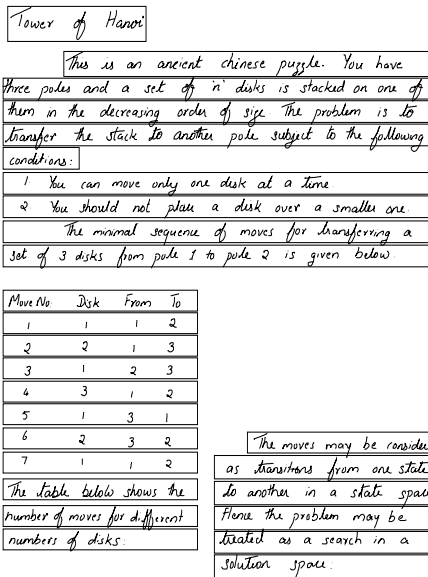 Tower of Hanoi
This is an ancient chinese puzzle. You have
three poles and a set of 'n' disks is stacked on one of
them in the decreasing order of size. The problem is to
transfer the stack to another pole subject to the following
conditions:
1. You can move only one disk at a time
2. You should not place a disk over a smaller one.
The minimal sequence of moves for transferring a
set of 3 disks from pole 1 to pole 2 is given below.
Move No. Disk From To
1 1 1 2
2 2 1 3
3 1 2 3
4 3 1 2
5 1 3 1
6 2 3 2
7 1 1 2
The table below shows the
number of moves for different
numbers of disks:
The moves may be consider
as transitions from one state
to another in a state space
Hence the problem may be
treated as a search in a
solution space: